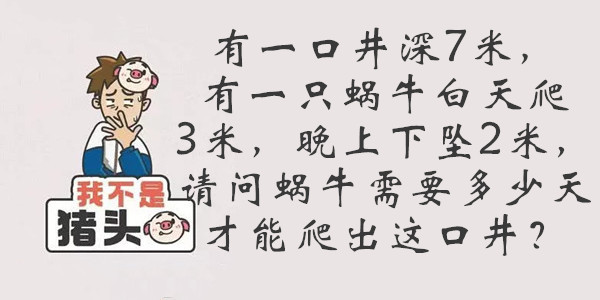 有一口井深7米，
有一只蜗牛白天爬
3米，晚上下坠2米，
请问蜗牛需要多少天
才能爬出这口井？
我不是
猪头